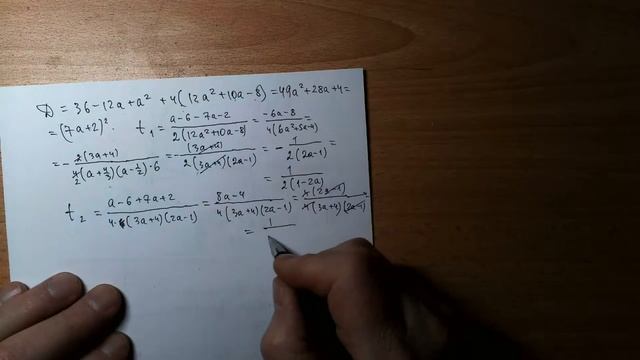 D = 36-12a+a² +4(12a²+10a-8) = 49a²+28a+4=
=(7a+2)². t₁ = (a-6-7a-2)/(2(12a²+10a-8)) = (-6a-8)/(4(6a²+5a-4)) =
= - 2(3a+4)/(4(a+4/3)(a-1/2)·6) = - (3a+4)/(2(3a+4)(2a-1)) = - 1/(2(2a-1)) =
= 1/(2(1-2a))
t₂ = (a-6+7a+2)/(4·(3a+4)(2a-1)) = (8a-4)/(4(3a+4)(2a-1)) = 4(2a-1)/(4(3a+4)(2a-1)) =
= 1/